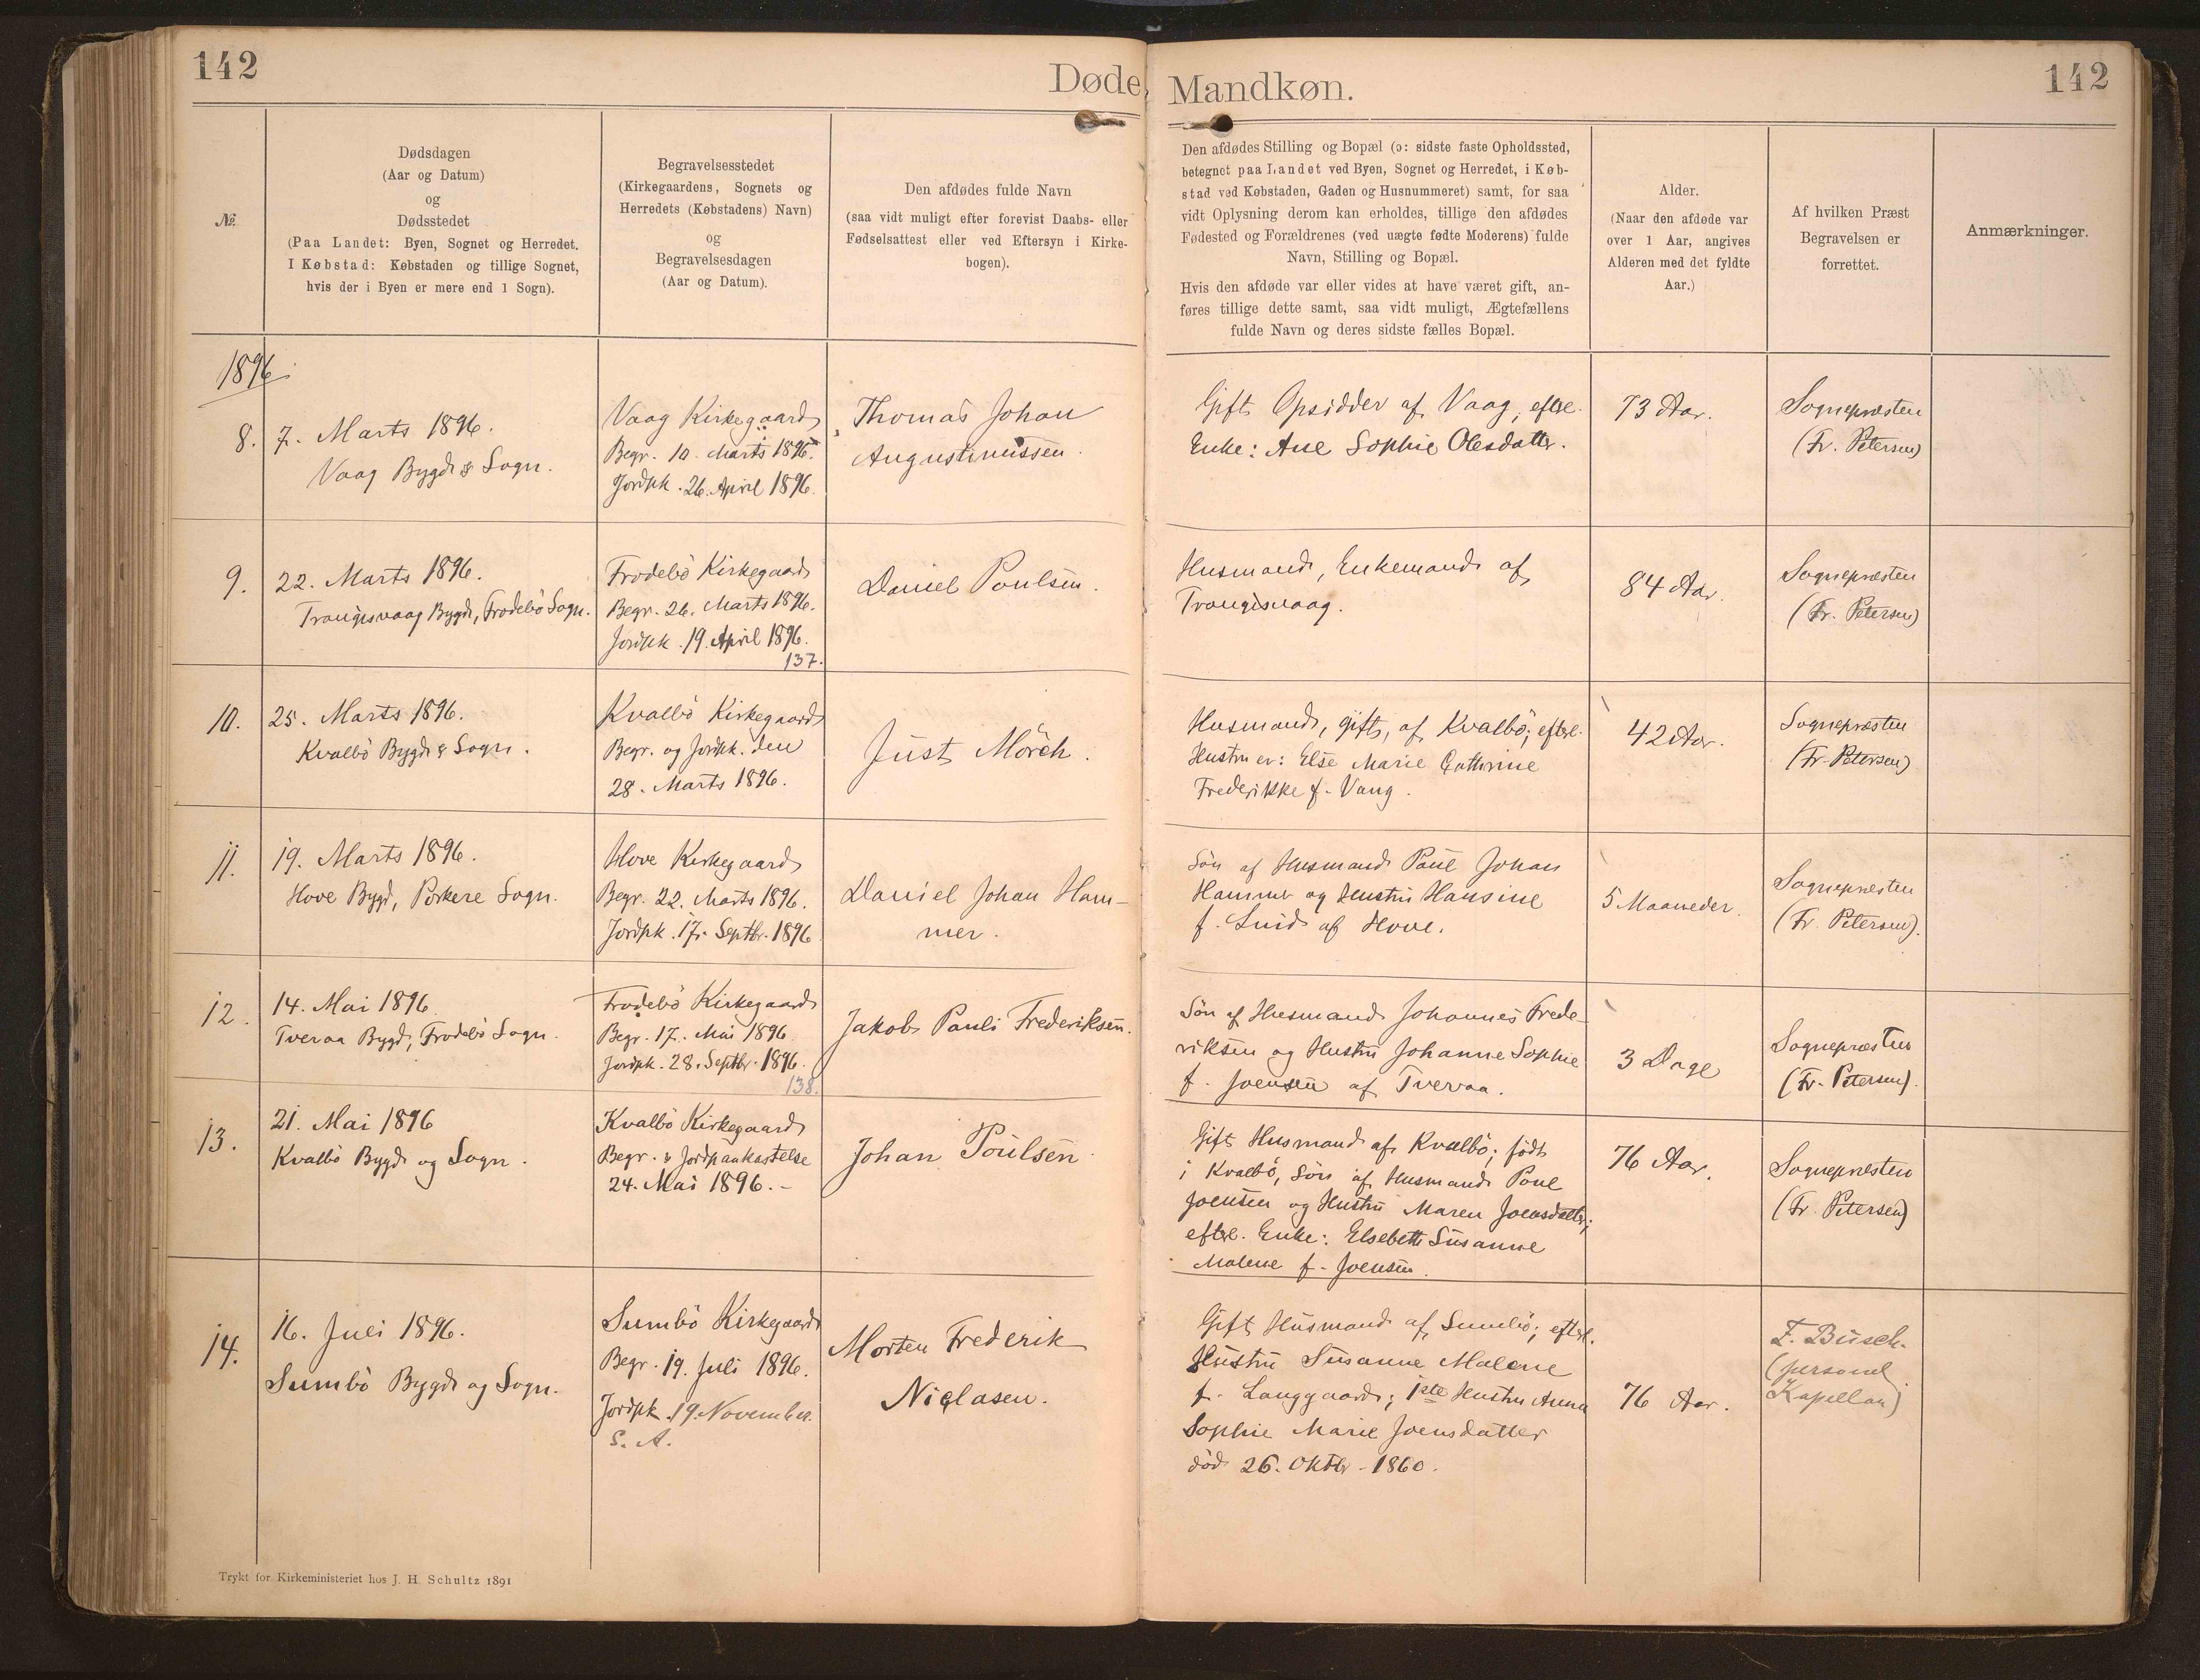 142
Døde,
Mandkøn.
142
№
Dødsdagen
(Aar og Datum)
og
Dødsstedet
(Paa Landet: Byen, Sognet og Herredet.
I Købstad: Købstaden og tillige Sognet,
hvis der i Byen er mere end 1 Sogn).
Begravelsesstedet
(Kirkegaardens, Sognets og
Herredets (Købstadens) Navn)
og
Begravelsesdagen
(Aar og Datum).
Den afdødes fulde Navn
(saa vidt muligt efter forevist Daabs- eller
Fødselsattest eller ved Eftersyn i Kirke-
bogen).
Den afdødes Stilling og Bopæl (ɔ: sidste faste Opholdssted,
betegnet paa Landet ved Byen, Sognet og Herredet, i Køb-
stad ved Købstaden, Gaden og Husnummeret) samt, for saa
vidt Oplysning derom kan erholdes, tillige den afdødes
Fødested og Forældrenes (ved uægte fødte Moderens) fulde
Navn, Stilling og Bopæl.
Hvis den afdøde var eller vides at have været gift, an-
føres tillige dette samt, saa vidt muligt, Ægtefællens
fulde Navn og deres sidste fælles Bopæl.
Alder.
(Naar den afdøde var
over 1 Aar, angives
Alderen med det fyldte
Aar.)
Af hvilken Præst
Begravelsen er
forrettet.
Anmærkninger.
1896
8.
7. Marts 1896.
Vaag Bygd & Sogn.
Vaag Kirkegaard
Begr. 10. Marts 1896.
Jordpk. 26. April 1896.
Thomas Johan
Augustinussen.
Gift Opsidder af Vaag, efterl.
Enke: Ane Sophie Olesdatter.
73 Aar.
Sognepræsten
(Fr. Petersen)
9.
22. Marts 1896.
Trangisvaag Bygd, Frodebö Sogn.
Frodebö Kirkegaard
Begr. 26. Marts 1896.
Jordpk. 19. April 1896.
137.
Daniel Poulsen.
Husmand, Enkemand af
Trangisvaag.
84 Aar.
Sognepræsten
(Fr. Petersen)
10.
25. Marts 1896.
Kvalbö Bygd & Sogn.
Kvalbö Kirkegaard
Begr. og Jordpk. den
28. Marts 1896.
Just Mörch.
Husmand, gift, af Kvalbö; efterl.
Hustru er: Else Marie Cathrine
Frederikke f. Vang.
42 Aar.
Sognepræsten
(Fr. Petersen)
11.
19. Marts 1896.
Hove Bygd, Porkere Sogn.
Hove Kirkegaard
Begr. 22. Marts 1896.
Jordpk. 17. Septbr. 1896
Daniel Johan Ham-
mer.
Sön af Husmand Poul Johan
Hammer og Hustru Hansine
f. Lind af Hove.
5 Maaneder.
Sognepræsten
(Fr. Petersen).
12.
14. Mai 1896.
Tveraa Bygd, Frodebö Sogn.
Frodebö Kirkegaard
Begr. 17. Mai 1896
Jordpk. 28. Septbr. 1896.
138.
Jakob Pauli Frederiksen.
Sön af Husmand Johannes Frede-
riksen og Hustru Johanne Sophie
f. Joensen af Tveraa.
3 Dage
Sognepræsten
(Fr. Petersen).
13.
21. Mai 1896
Kvalbö Bygd og Sogn.
Kvalbö Kirkegaard
Begr. & Jordpaakastelse
24. Mai 1896.-
Johan Poulsen.
Gift Husmand af Kvalbö; födt
i Kvalbö, Sön af Husmand Poul
Joensen og Hustru Maren Joensdatter;
efterl. Enke: Elsebeth Susanne
Malene f. Joensen.
76 Aar.
Sognepræsten
(Fr. Petersen)
14.
16. Juli 1896.
Sumbö Bygd og Sogn.
Sumbö Kirkegaard
Begr. 19. Juli 1896.
Jordpk. 19. November.
S. A.
Morten Frederik
Niclasen.
Gift Husmand af Sumbö; efterl.
Hustru Susanne Malene
f. Langgaard; 1ste Hustru Anna
Sophie Marie Joensdatter
död 26. Oktbr. 1860.
76 Aar.
F. Busch.
(personel
Kapellan)
Trykt for Kirkeministeriet hos J. H. Schultz 1891